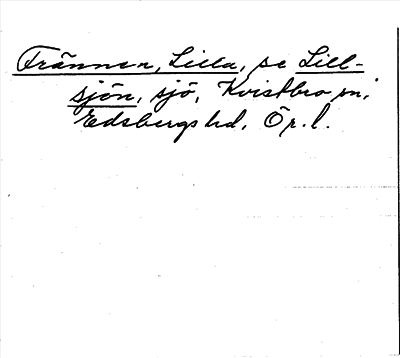 Frännen, Lilla, se Lill-
sjön, sjö, Kvistbro sn,
Edsbergs hd, Ör. l.